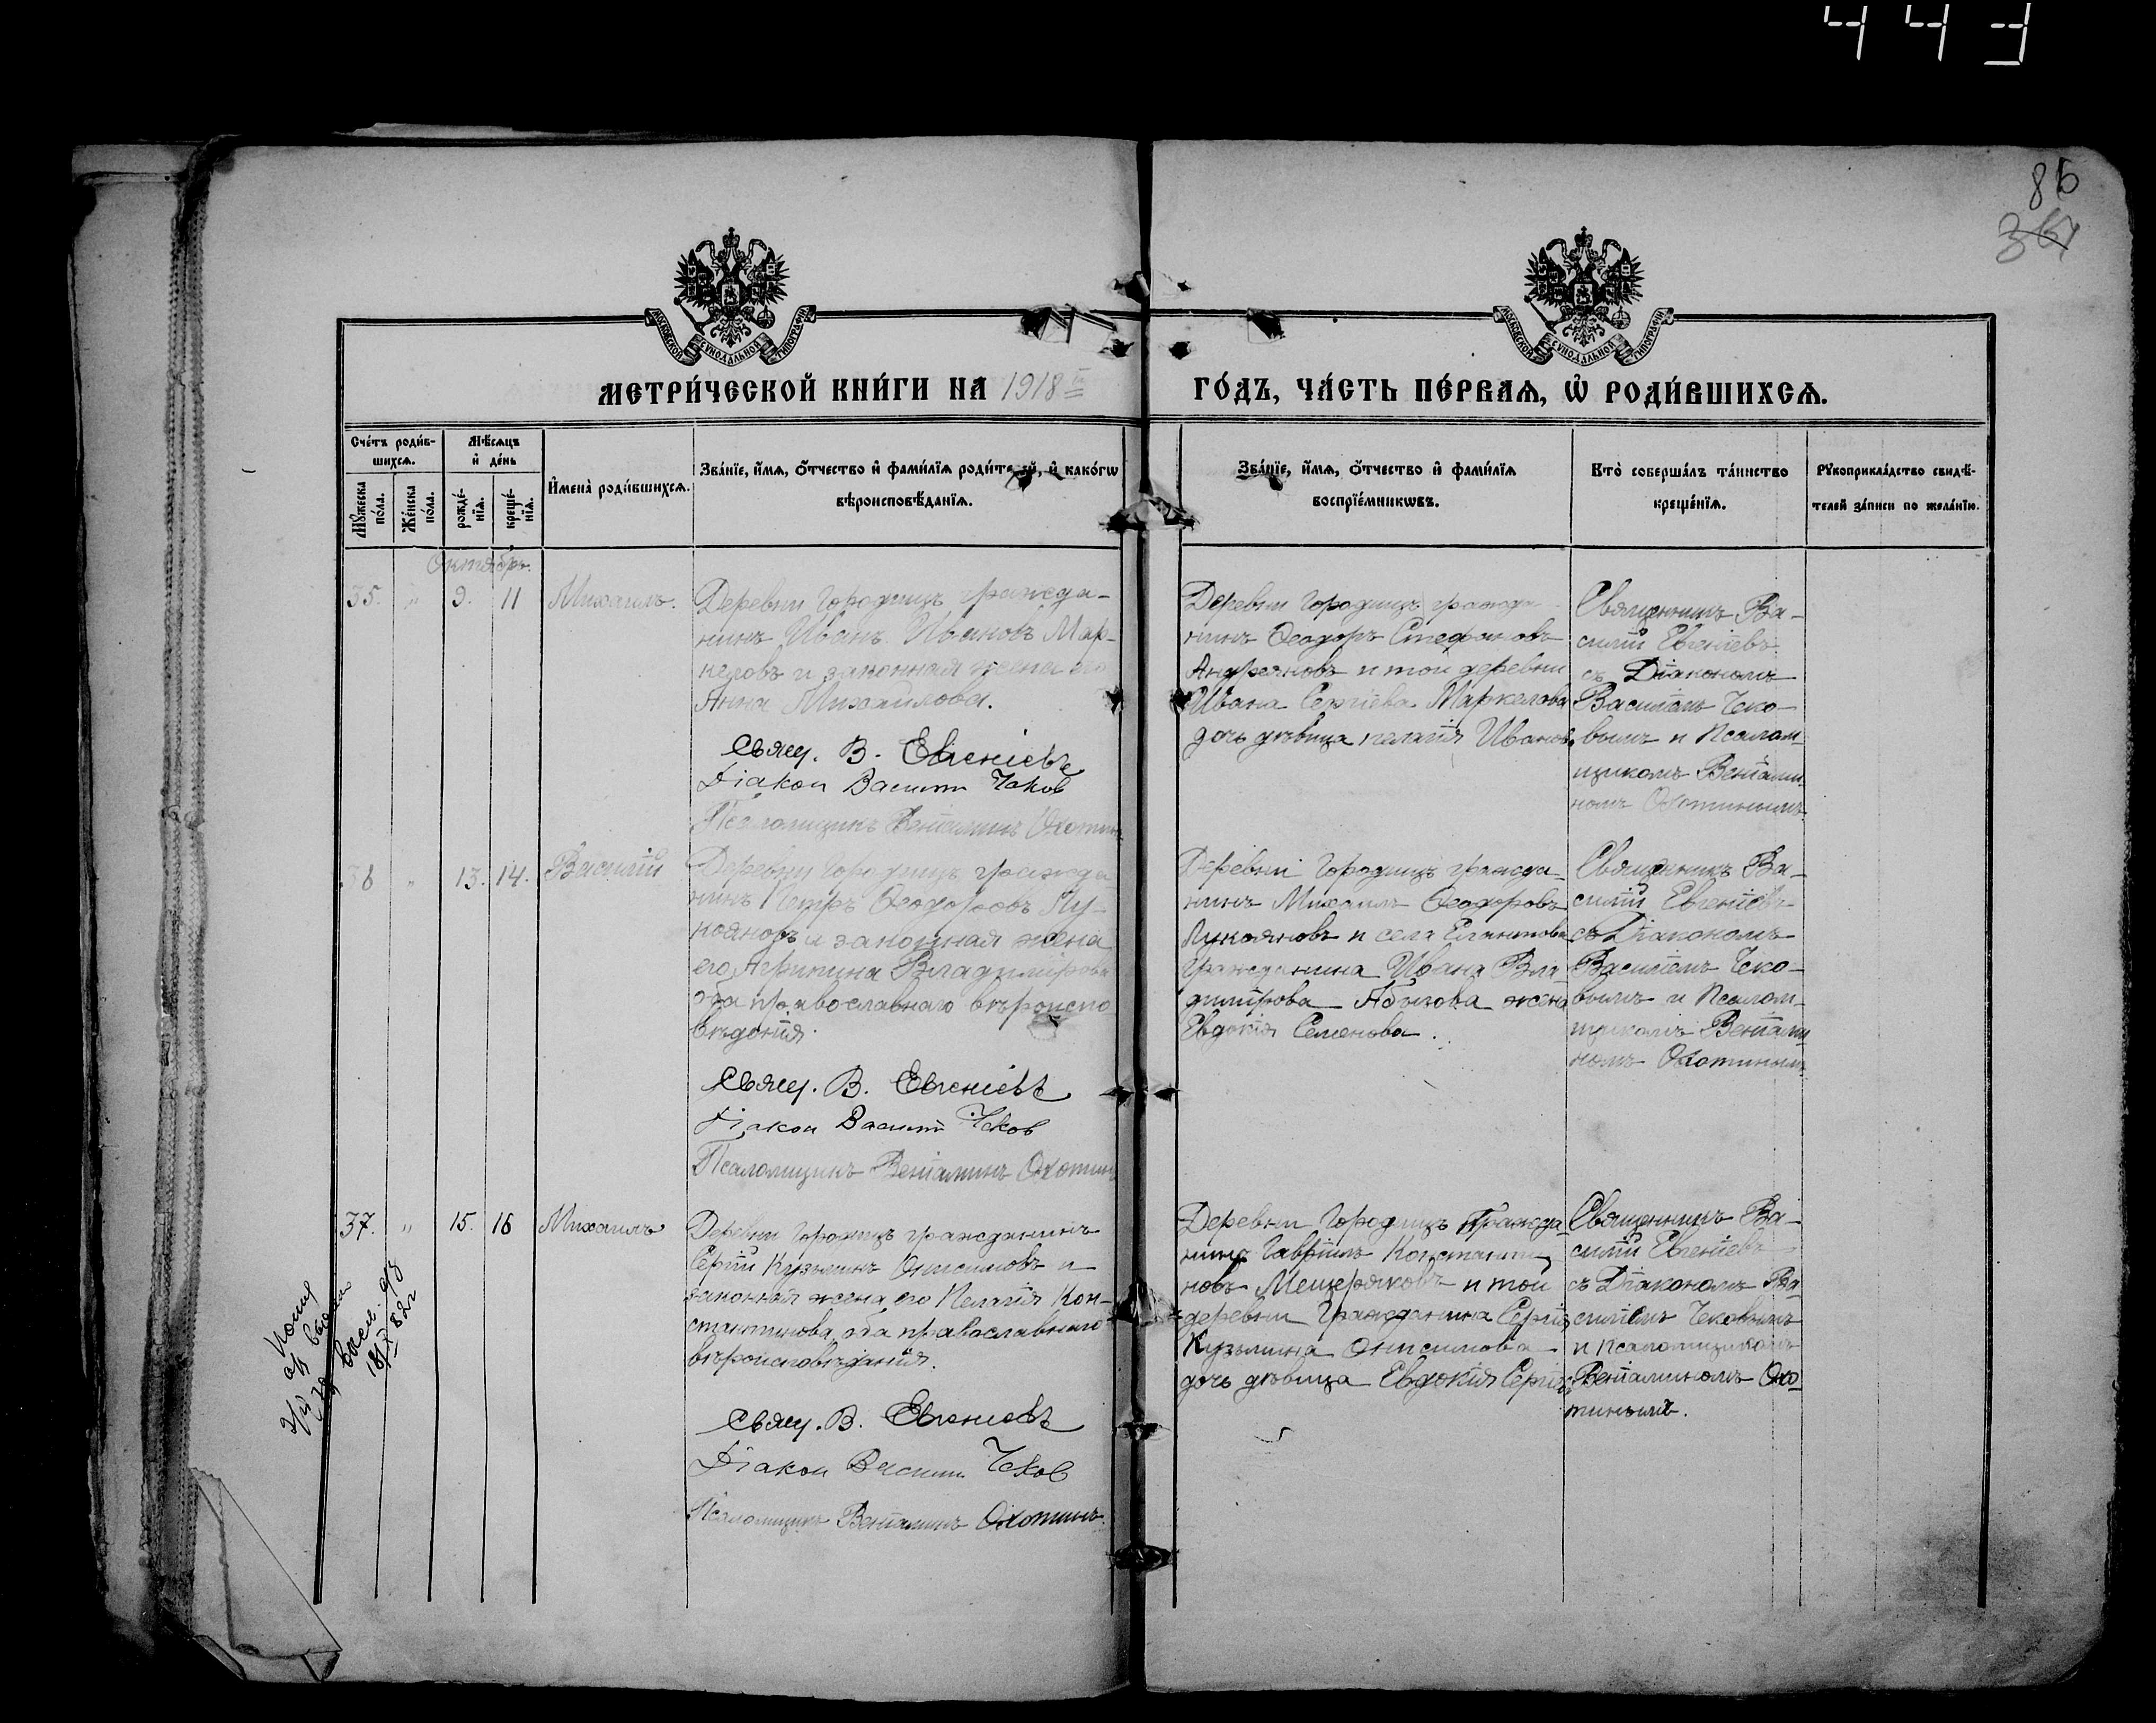 443
86
367
МОСКОВСКОЙ СѴНОДАЛЬНОЙ ТИПОГРАФІИ
МОСКОВСКОЙ СѴНОДАЛЬНОЙ ТИПОГРАФІИ
МЕТРИ́ЧЕСКОЙ КНИ́ГИ НА 1918 й
ГО́ДЪ, ЧА́СТЬ ПЕ́РВАѦ, Ѽ РОДИ́ВШИХСѦ.
Сче́тъ роди́в-
шихсѧ.
Мѣ́сѧцъ
и҆ де́нь
Мꙋ́жеска по́ла.
Же́нска по́ла.
рожде́-
нїѧ.
креще́-
нїѧ.
И҆мена̀ роди́вшихсѧ.
Зва́нїе, и҆́мѧ, ѻ҆́тчество и҆ фами́лїѧ роди́телей, и҆ како́гѡ
вѣроисповѣ́данїѧ.
Зва́нїе, и҆́мѧ, ѻ҆́тчество и҆ фами́лїѧ
воспрїе́мникѡвъ.
Кто̀ соверша́лъ та́инство
креще́нїѧ.
Рꙋкоприкла́дство свидѣ́-
телей за́писи по жела́нїю.
Октябрь.
35. " 9. 11 Михаилъ.
Деревни Городищъ гражда-
нинъ Иванъ Ивановъ Мар-
келовъ и законная жена его
Анна Михаилова.
Свящ. В. Евгеніевъ
Діакон Василій Чеков
Псаломщикъ Веніаминъ Охотин
Деревни Городищъ гражда
нинъ Ѳеодоръ Стефановъ
Андреяновъ и той деревни
Ивана Сергіева Маркелова
дочь дѣвица Пелагія Иванов.
Священникъ Ва-
силій Евгеніевъ
съ Діакономъ
Василіемъ Чеко-
вымъ и Псалом-
щикомъ Веніами
номъ Охотинымъ
36 " 13. 14. Василій
Деревни Городищъ гражда
нинъ Петръ Ѳеодоровъ Лу-
кояновъ и законная жена
его Агрипина Владимірова
оба православнаго вѣроиспо
вѣданія.
Свящ. В. Евгеніевъ
Діакон Василій Чеков
Псаломщикъ Веніаминъ Охотинъ
Деревни Городищъ гражда-
нинъ Михаилъ Ѳеодоровъ
Лукояновъ и села
гражданина Ивана Вла
димірова жена
Евдокія Семенова.
Священникъ Ва-
силій Евгеніевъ
съ Діакономъ
Василіемъ Чеко-
вымъ и Псалом-
щикомъ Веніами
номъ Охотиным
37. " 15. 16 Михаилъ
Деревни Городищъ гражданинъ
Сергій Кузьминъ Онисимовъ и
законная жена его Пелагія Кон-
стантинова, оба православнаго
вѣроисповѣданія.
Свящ. В. Евгеніевъ
Діакон Василій Чеков
Псаломщикъ Веніаминъ Охотинъ.
Деревни Городищъ Гражда
нинъ Гавріилъ Константи
новъ Мещеряковъ и той
деревни Гражданина Сергія
Кузьмина Онисимова
дочь дѣвица Евдокія Сергіев.
Священникъ Ва-
силій Евгеніевъ
съ Діакономъ Ва
силіемъ Чековымъ
и псаломщикомъ
Веніаминомъ Охо-
тинымъ.